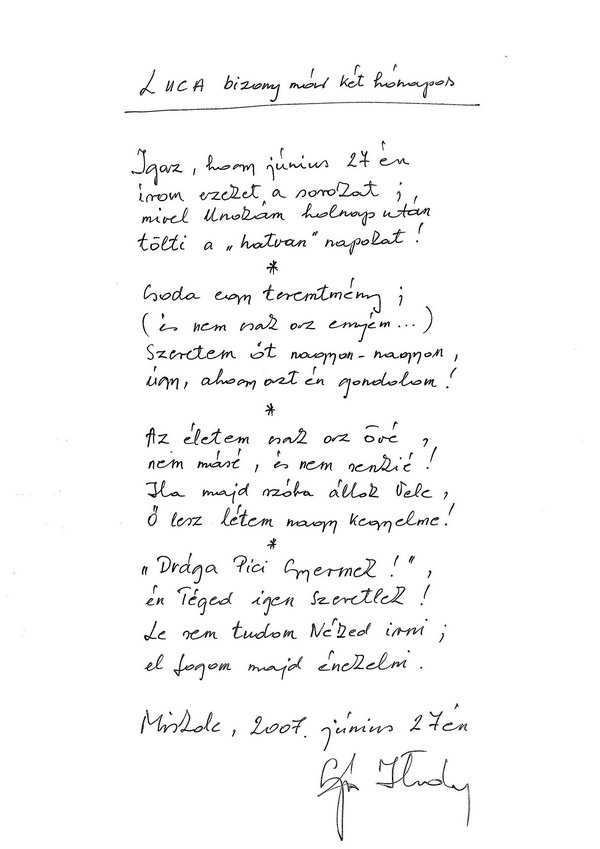 LUCA bizony már két hónapos
Igaz, hogy június 27 én
írom ezeket a sorokat ;
mivel Unokám holnap után
tölti a „hatvan" napokat !
*
Csoda egy teremtmény ;
( és nem csak az enyém ... )
Szeretem őt nagyon - nagyon ,
úgy, ahogy azt én gondolom !
*
Az életem csak az övé ,
nem másé , és nem senkié !
Ha majd szóba állok Vele ,
Ő lesz létem nagy kegyelme !
*
„Drága Pici Gyermek !" ,
én Téged igen Szeretlek !
Le sem tudom Néked írni ;
el fogom majd énekelni .
Miskolc , 2007. június 27én